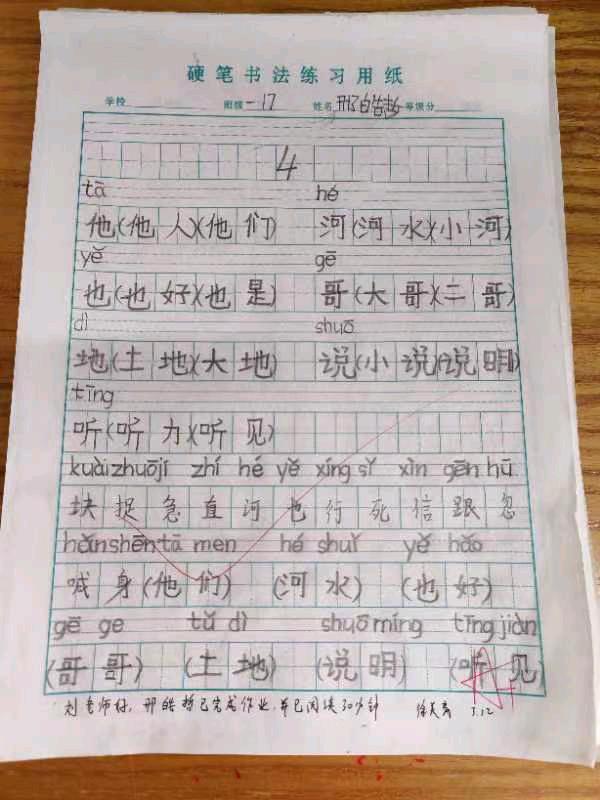 硬笔书法练习用纸
学校 班级 一17 姓名 邢皓哲 等级分
4
tā hé
他(他人)(他们) 河(河水)(小河)
yě gē
也(也好)(也是) 哥(大哥)(二哥)
dì shuō
地(土地)(大地) 说(小说)(说明)
tīng
听(听力)(听见)
kuài zhuō jí zhí hé yě xíng sǐ xìn gēn hū
块捉急直河也行死信跟忽
hǎn shēn tā men hé shuǐ yě hǎo
喊身(他们) (河水) (也好)
gē ge tǔ dì shuō míng tīng jiàn
(哥哥) (土地) (说明) (听见)
刘老师好,邢皓哲已完成作业,并已阅读30分钟 3.12